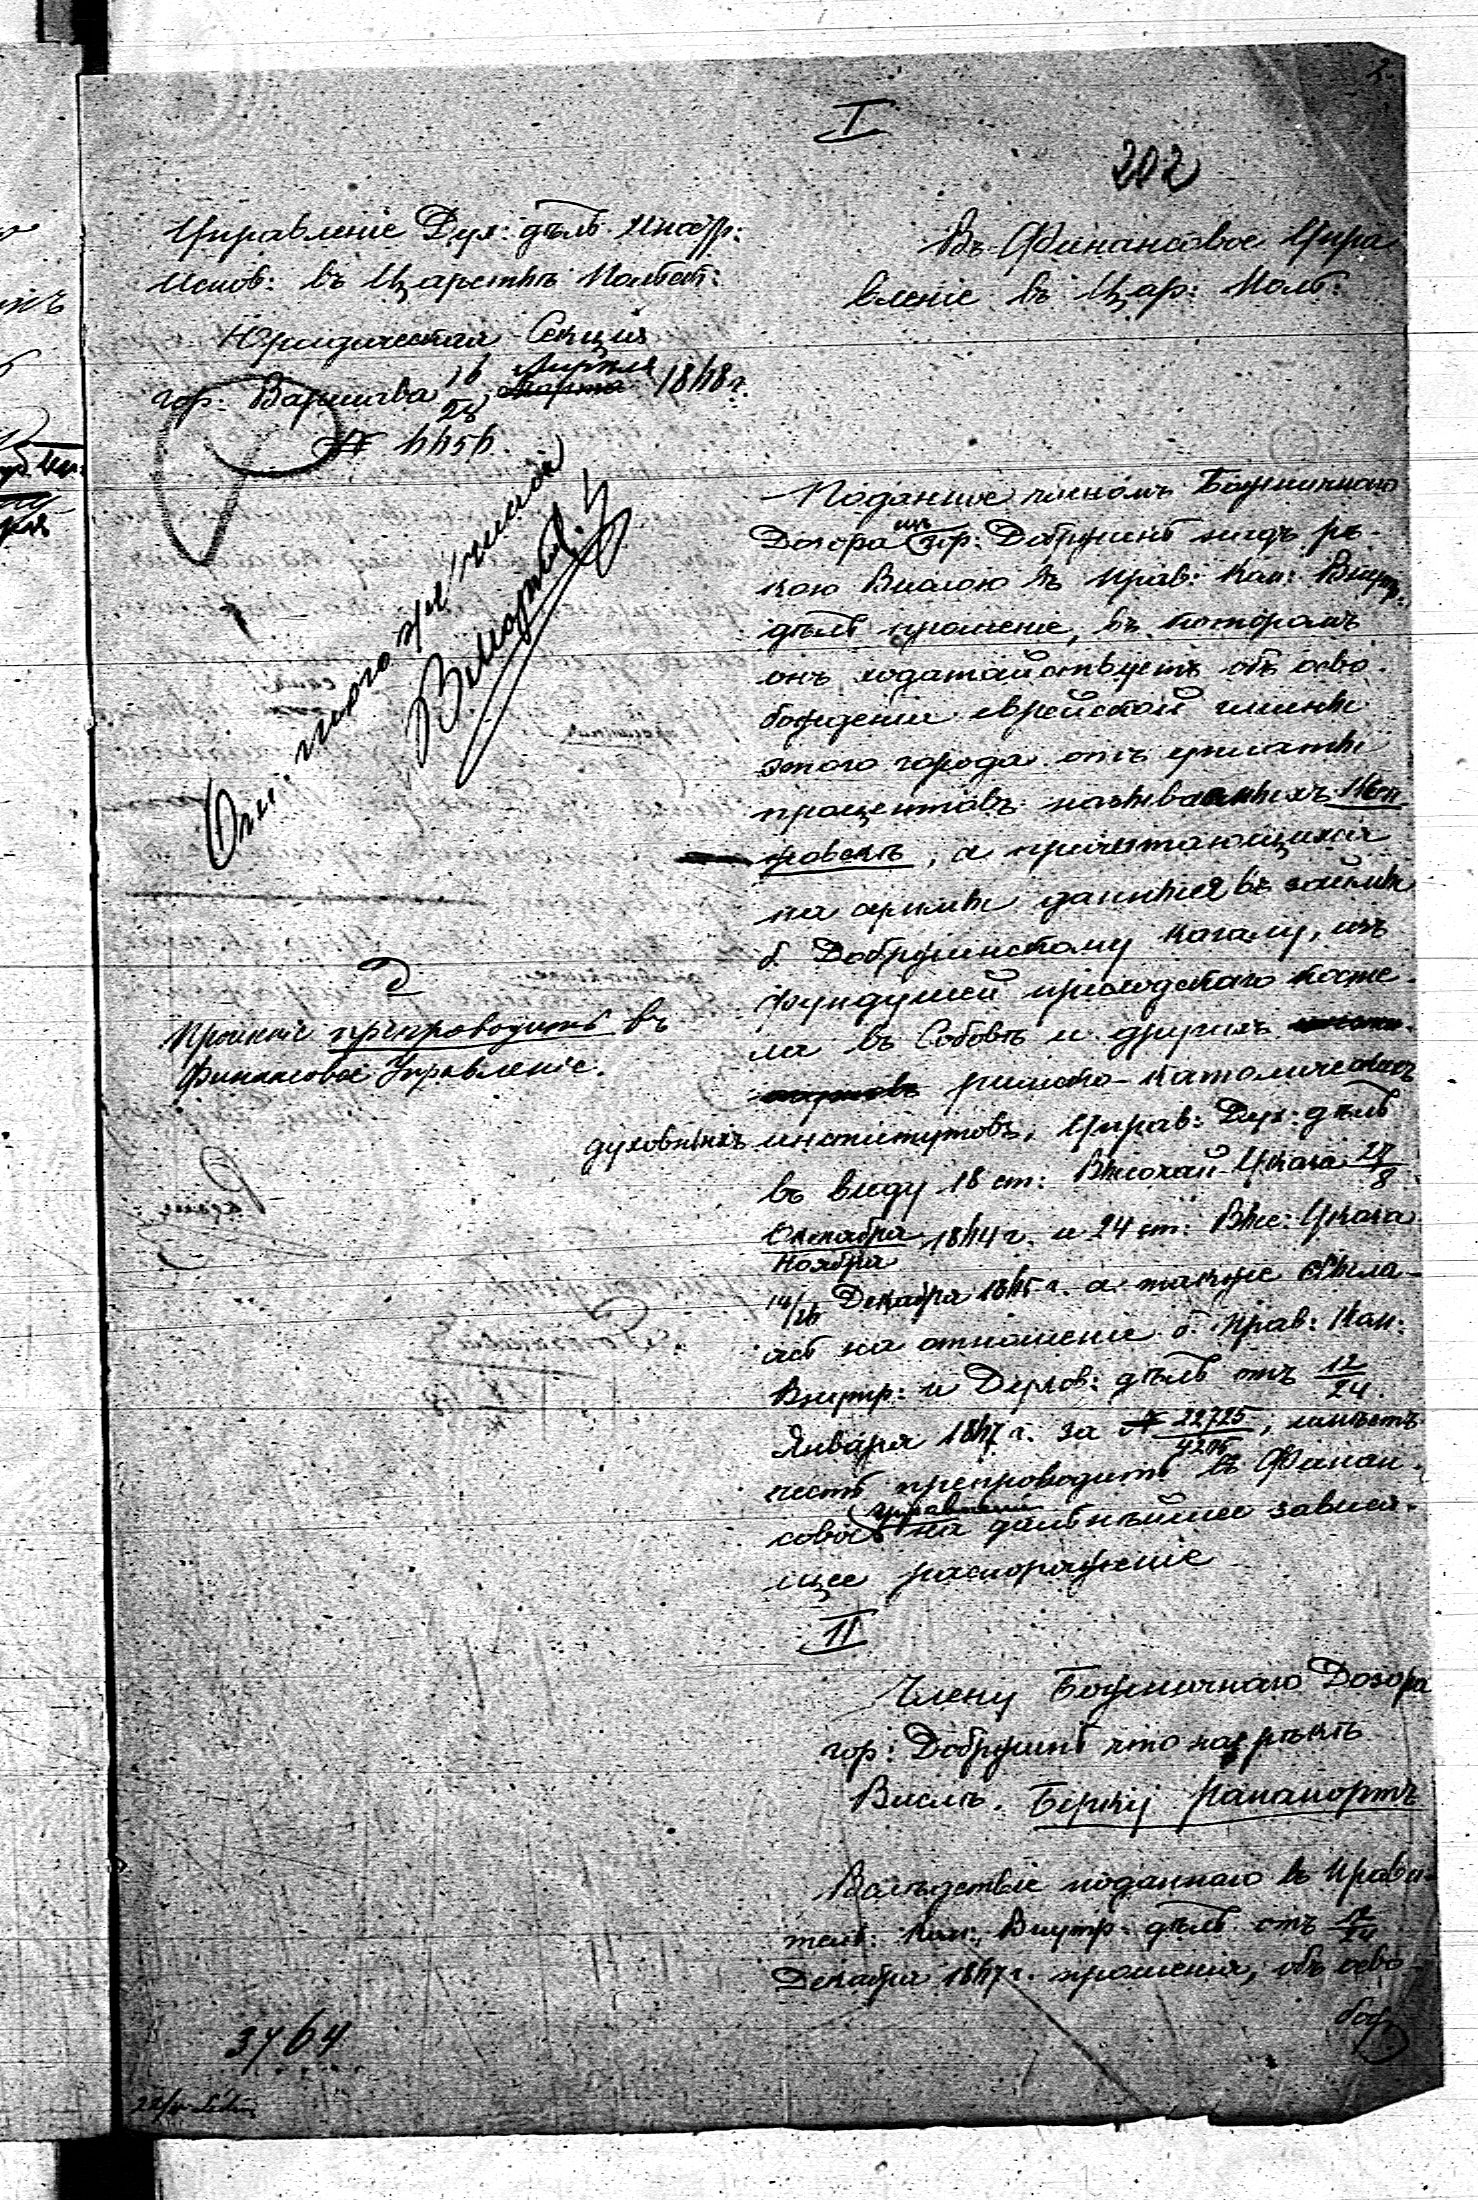 I
202
Управленіе Дух: дѣлъ Иностр:
Испов: въ Царствѣ Польск:
Юридическая Секція
гор: Варшава 16/28 Апрѣля 1848 г.
№ 4454.
Въ Финансовое Упра
вленіе въ Цар: Польс:
Поданное членомъ Божничнаго
Дозора гор: Добржинь надъ рѣ-
кою Вислою въ Прав: Ком: Внутр:
дѣлъ прошеніе, въ которомъ
онъ ходатайствуетъ объ осво-
божденіи еврейской гмины
этого города отъ уплаты
процентовъ называемыхъ
, а причитающихся
на суммы данныя въ займы
б. Добржинскому кагалу, изъ
фундушей приходскаго косте-
ла въ Соборѣ и другихъ
римско-католическихъ
духовныхъ институтовъ, Управ: Дух: дѣлъ
въ виду 18 ст: Высочай: Указа 27/8
Октября/Ноября 1844 г. и 24 ст: Выс: Указа
14/26 Декабря 1845 г. а также ссыла-
ясь на отношеніе б. Прав: Ком:
Внутр: и Духов: дѣлъ отъ 12/24
Января 1847 г. за № 22725/4205, имѣетъ
честь препроводить въ Финан-
совое Управленіе на дальнѣйшее завися-
щее распоряженіе
Прошеніе препроводить въ
Финансовое Управленіе.
II
Члену Божничнаго Дозора
гор: Добржинь что на рѣкѣ
Вислѣ. Берку Рапапортъ
Вслѣдствіе поданнаго въ Прави-
тел: Ком: Внутр: дѣлъ отъ 12/24
Декабря 1847 г. прошенія, объ осво-
бож
3764